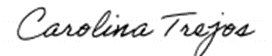 Carolina Trejos